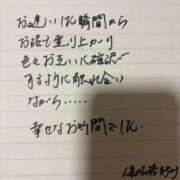 お逢いした瞬間から
お話で盛り上がり
色々お互いに確認✓
するように触れ合い
ながら……
幸せなお時間でした。